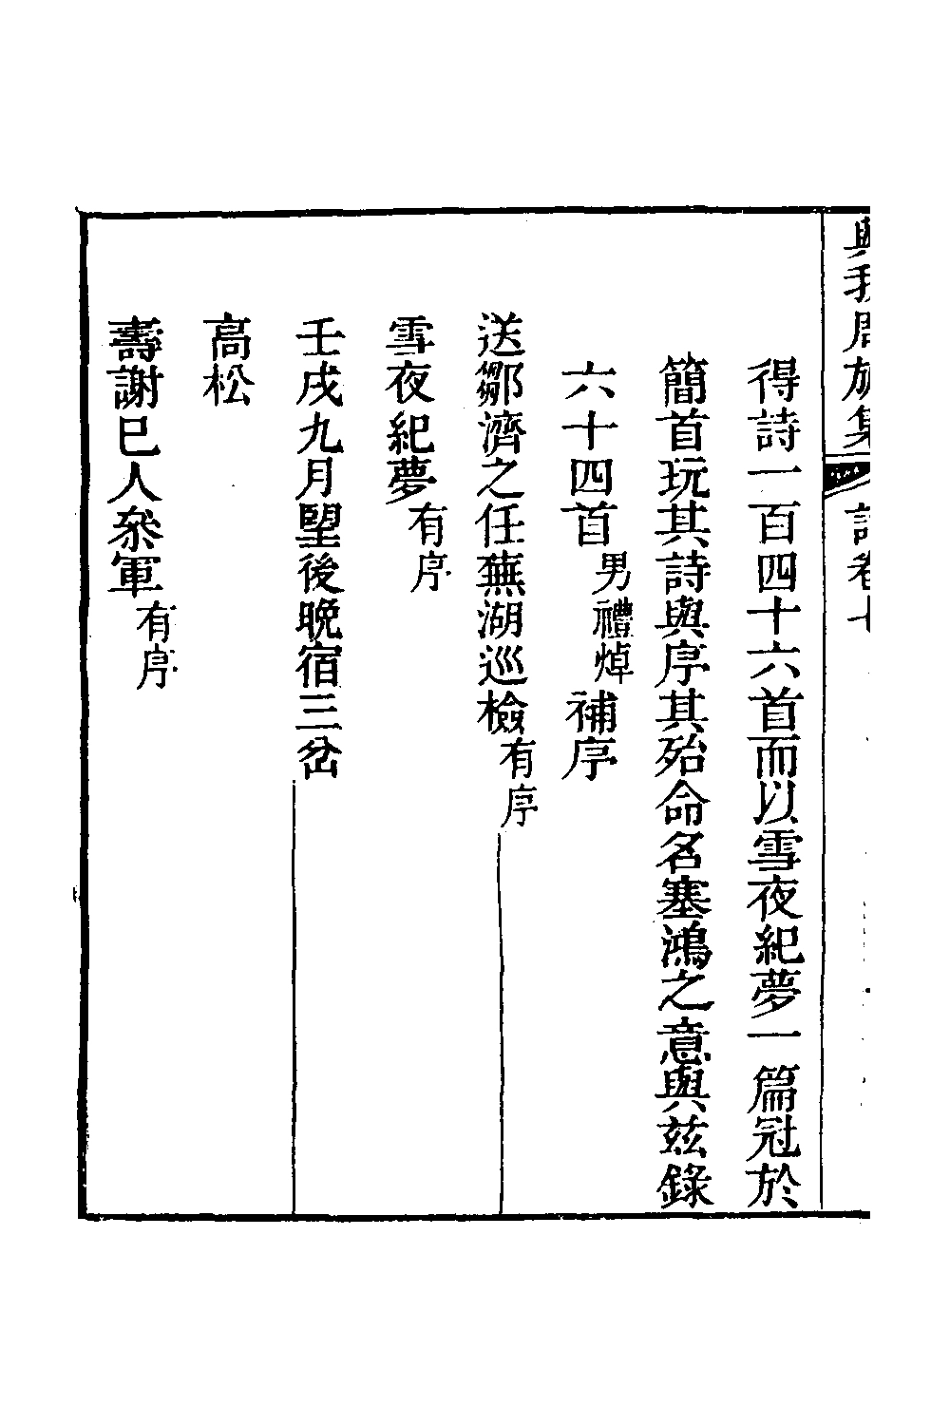 與我周旋集 詩卷
得詩一百四十六首而以雪夜紀夢一篇冠於
簡首玩其詩與序其殆命名塞鴻之意與茲錄
六十四首男禮焯補序
送鄒濟之任蕪湖巡檢有序
雪夜紀夢有序
壬戌九月朢後晚宿三岔
高松
壽謝巳人叅軍有序